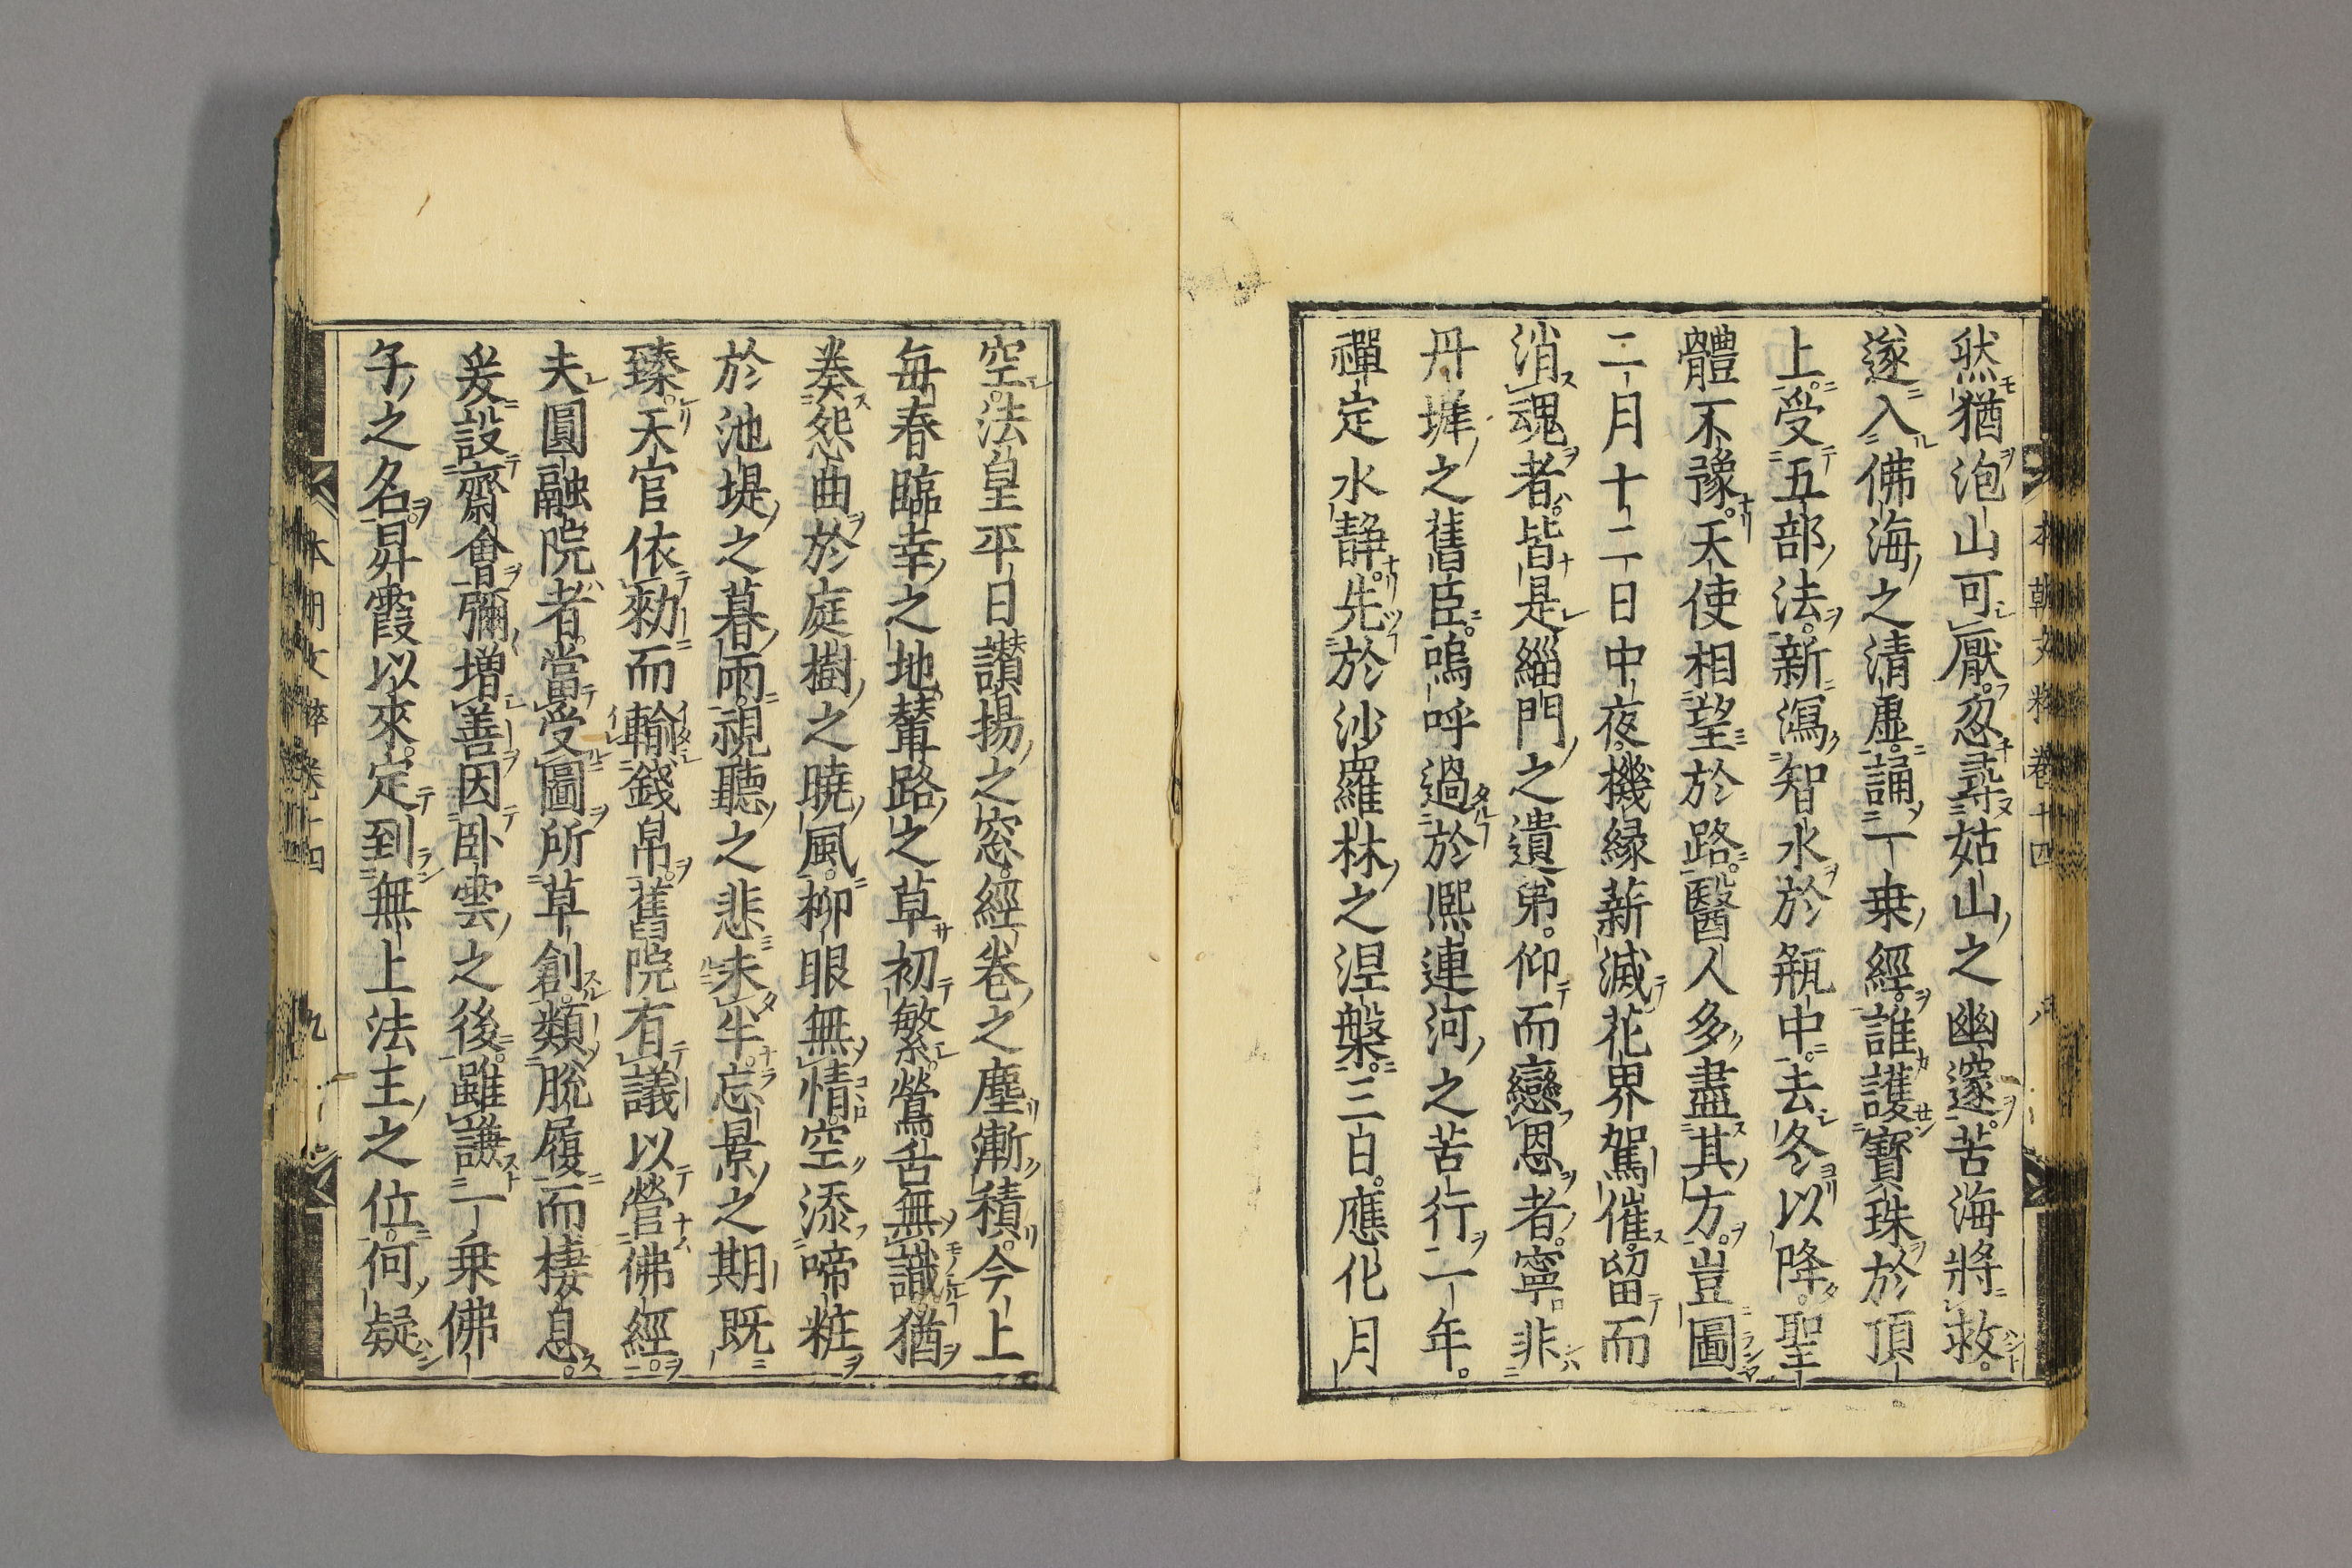 然猶泡山可厭忍尋姑山之幽邃苦海將救
遂入佛海之清虚誦一乗經誰護寶珠於頂
上受五部法新瀉智水於瓶中去冬以降聖
體不豫天使相望於路醫人多盡其方豈圖
二月十二日中夜機縁薪滅花界駕催留而
消魂者皆是緇門之遺弟仰而戀恩者寧非
丹墀之舊臣嗚呼過於熈連河之苦行二年
禪定水静先於沙羅林之涅槃三日應化月
本朝文粹卷十四 八
空法皇平日讃揚之窓經卷之塵漸積今上
毎春臨幸之地輦路之草初繁鶯舌無識猶
奏怨曲於庭樹之曉風柳眼無情空添啼粧
於池堤之暮雨視聽之悲未半忘景之期既
臻天官依勅而輸錢帛舊院有議以營佛經
夫圓融院者當受圖所草創類脱履而棲息
爰設齋會彌增善因卧雲之後雖謙一乗佛
子之名昇霞以來定到無上法主之位何疑
本朝文粹卷十四 九